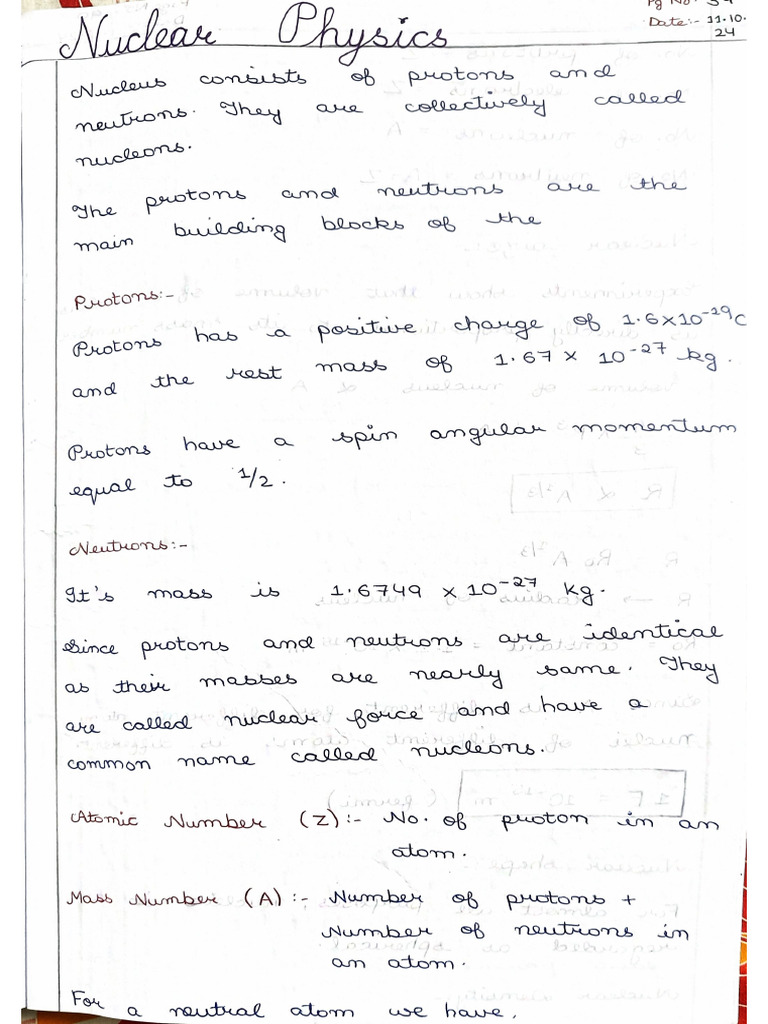 Pg No:- 54
Date:- 11.10.24
Nuclear Physics
Nucleus consists of protons and
neutrons. They are collectively called
nucleons.
The protons and neutrons are the
main building blocks of the
Protons:-
Protons has a positive charge of 1.6×10⁻¹⁹C
and the rest mass of 1.67 × 10⁻²⁷ kg.
Protons have a spin angular momentum
equal to 1/2.
Neutrons:-
It's mass is 1.6749 × 10⁻²⁷ kg.
Since protons and neutrons are identical
as their masses are nearly same. They
are called nuclear force and have a
common name called nucleons.
Atomic Number (Z):- No. of proton in an
atom.
Mass Number (A):- Number of protons +
Number of neutrons in
an atom.
For a neutral atom we have,